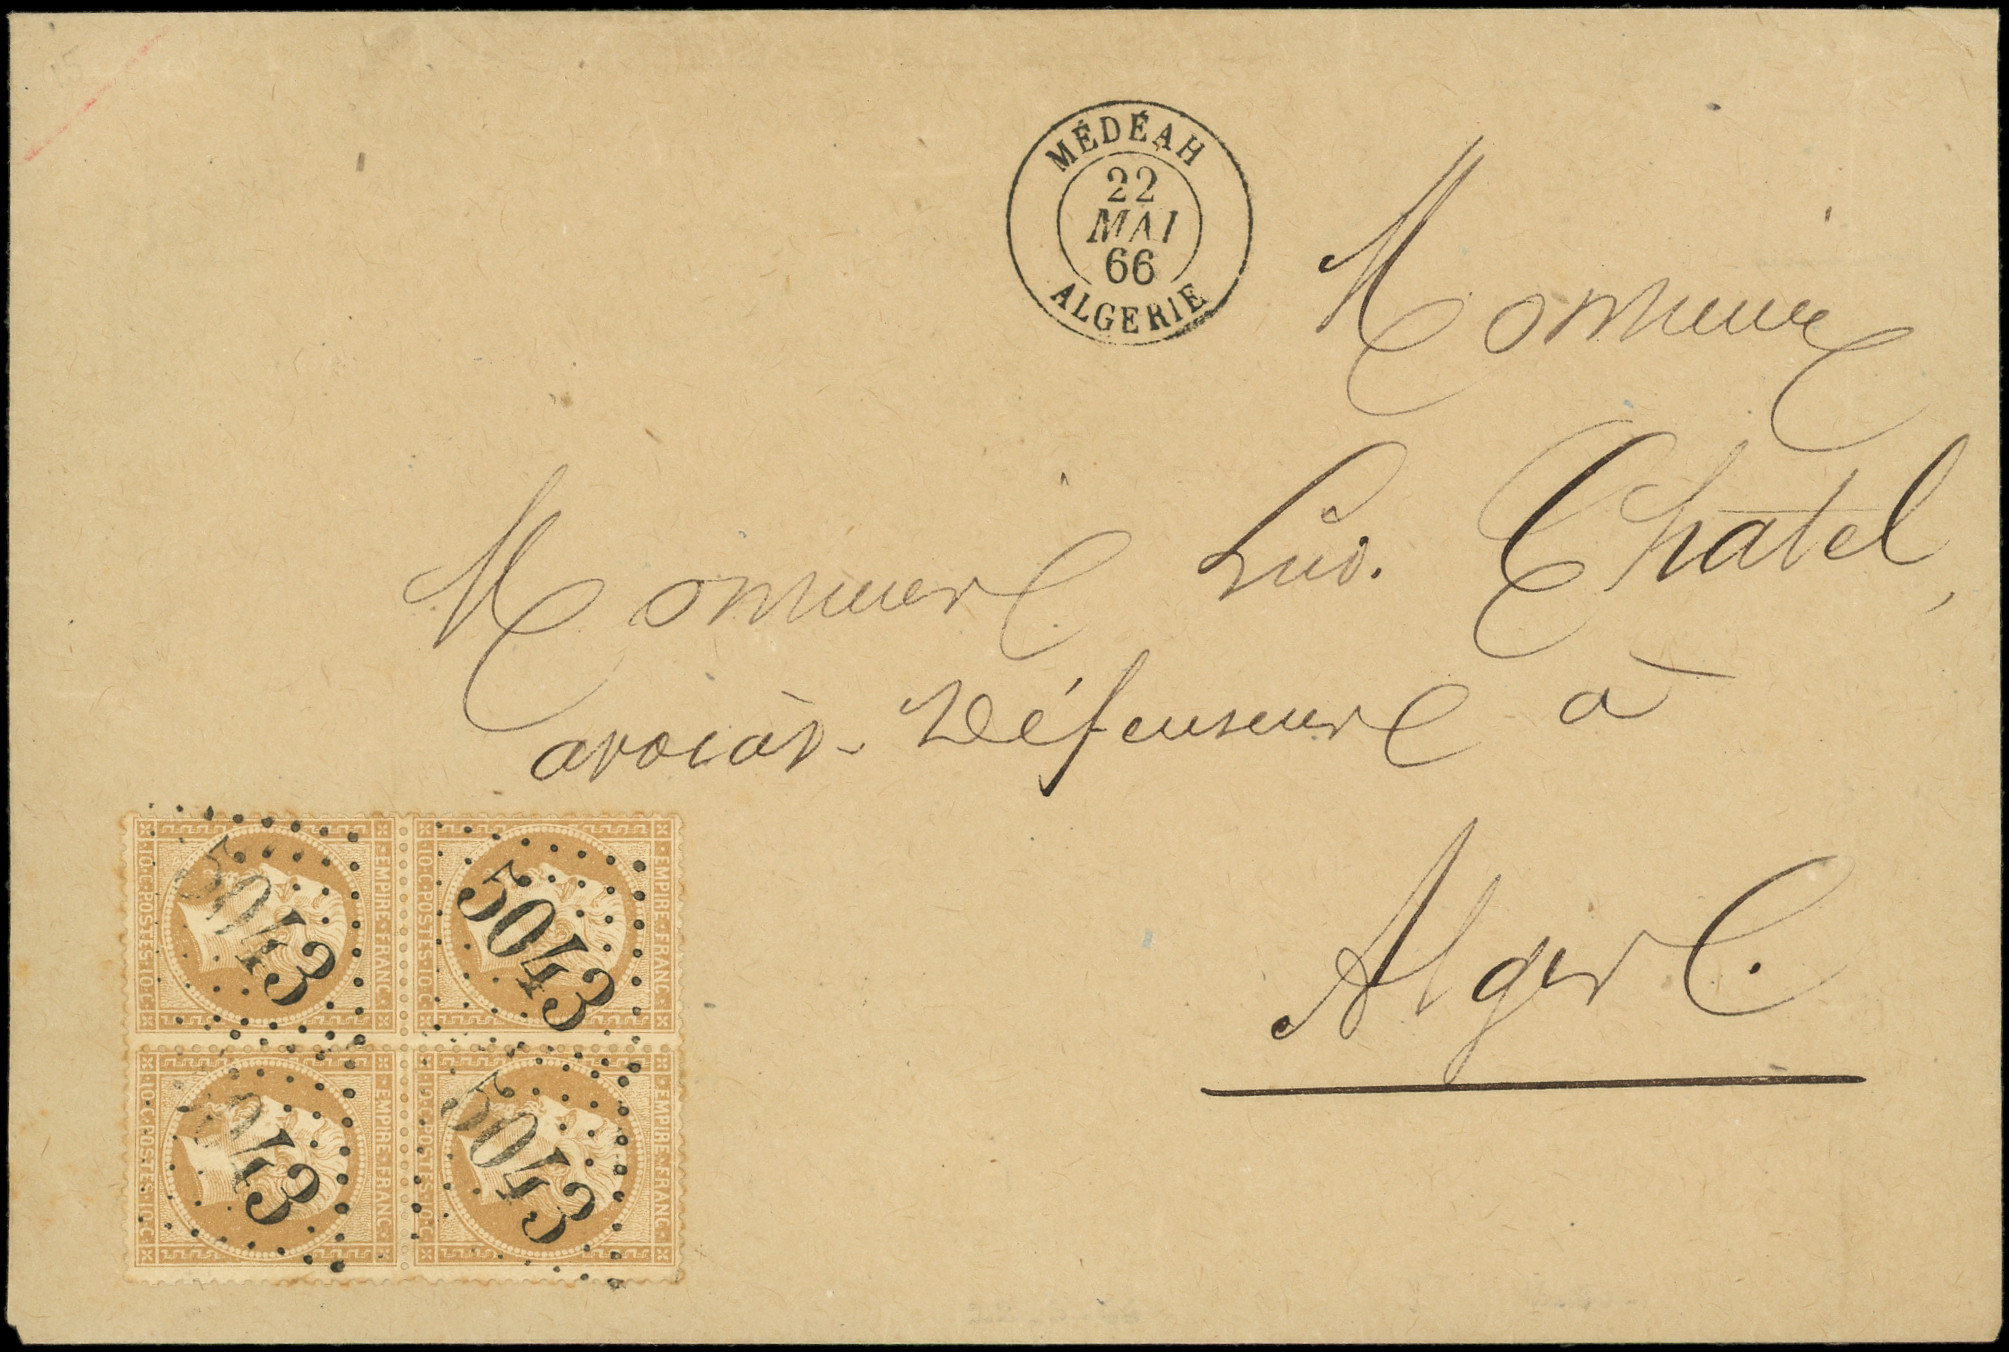 MÉDÉAH
22
MAI
66
ALGERIE
Monsieur
Monsieur Lud. Chatel,
avocat-Défenseur à
Alger.
EMPIRE·FRANC·
5043
10·C·POSTES·10·C
EMPIRE·FRANC·
5043
10·C·POSTES·10·C
EMPIRE·FRANC·
043
10·C·POSTES·10·C
EMPIRE·FRANC·
5043
10·C·POSTES·10·C